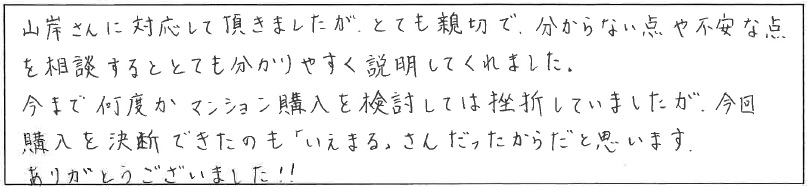 山岸さんに対応して頂きましたが、とても親切で、分からない点や不安な点
を相談するととても分かりやすく説明してくれました。
今まで何度かマンション購入を検討しては挫折していましたが、今回
購入を決断できたのも「いえまる」さんだったからだと思います。
ありがとうございました!!